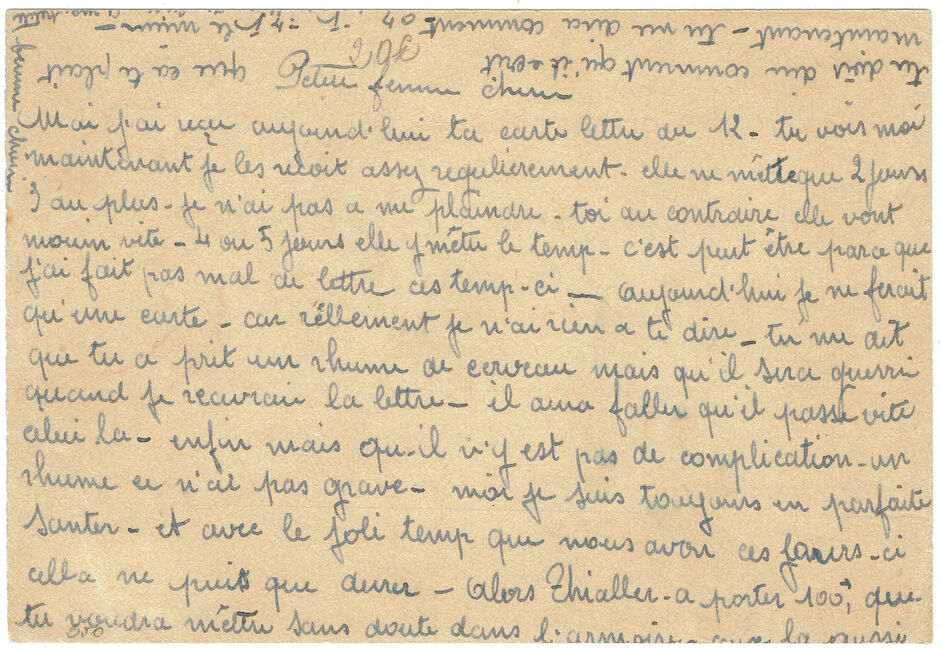 Petite femme Cherie
29€
Moi j'ai reçu aujourd'hui ta carte lettre du 12 - tu vois moi
maintenant je les recoit assez regulierement - elle ne mette que 2 jours
3 au plus - je n'ai pas a me plaindre - toi au contraire elle vont
mouin vite - 4 ou 5 jours elle y mette le temp - c'est peut être parce que
j'ai fait pas mal de lettre ces temp-ci - aujourd'hui je ne ferait
qu'une carte - car réllement je n'ai rien a te dire - tu me dit
que tu a prit un rhume de cerveau mais qu'il sera guerri
quand je recevrai la lettre - il aura faller qu'il passe vite
celui la - enfin mais qu-il n'y est pas de complication - un
rhume ce n'ai pas grave - moi je suis toujours en parfaite
santer - et avec le joli temp que nous avon ces jours-ci
cella ne puis que durer - Alors Thialler - a porter 100f, que
tu voudra mettre sans doute dans l'armoire -
350
tu dois dire comment qu'il ecrit que ca te plait
maintenant - tu me dira comment
femme cherie